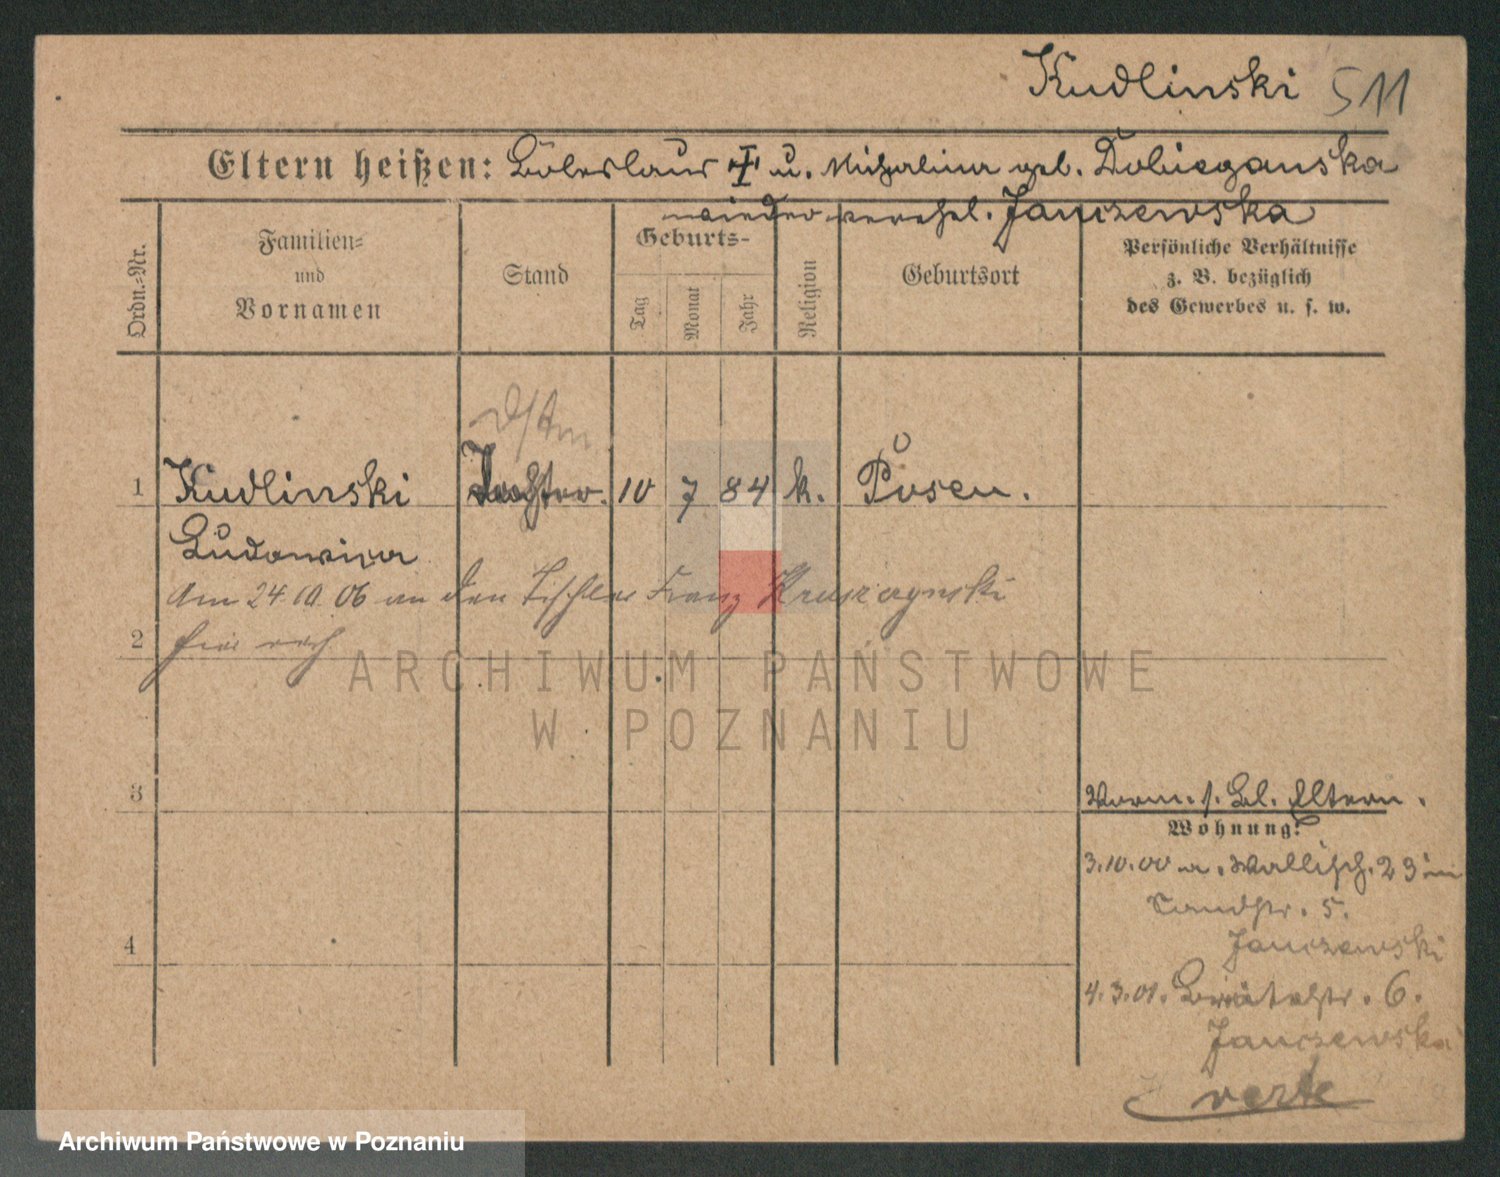 Kudlinski 511
Eltern heißen: Boleslaus † u. Michalina geb. Dobieganska
wieder verehel. Janczewska
Ordn.-Nr.
Familien-
und
Vornamen
Stand
Geburts-
Tag
Monat
Jahr
Religion
Geburtsort
Persönliche Verhältnisse
z. B. bezüglich
des Gewerbes u. s. w.
1 Kudlinski Tochter. 10 7 84 k. Posen.
Ludowica
Am 24.10.06 an den Tischler Franz
2
3
Vorm. s. Bl. Eltern.
Wohnung:
3.10.00 a. Wallisch. 23 in
Sandstr. 5.
Janczewski
4
4.3.01. 6.
Janczewska
verte
ARCHIWUM PAŃSTWOWE
W POZNANIU
Archiwum Państwowe w Poznaniu